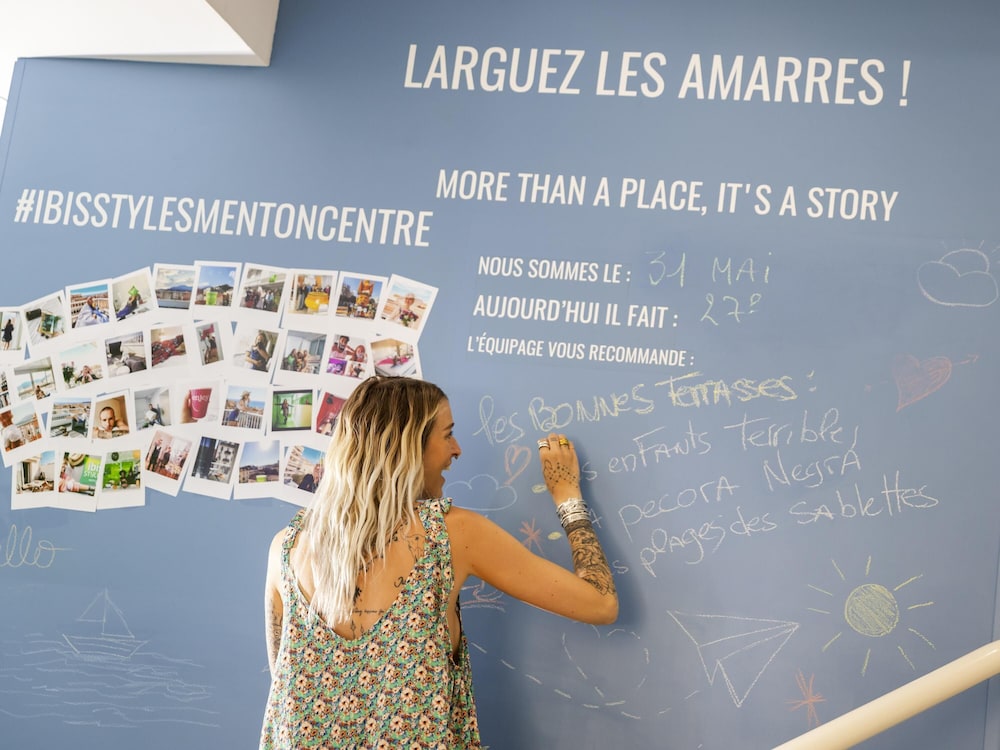 LARGUEZ LES AMARRES !
MORE THAN A PLACE, IT'S A STORY
#IBISSTYLESMENTONCENTRE
NOUS SOMMES LE : 31 MAI
AUJOURD'HUI IL FAIT : 27°
L'ÉQUIPAGE VOUS RECOMMANDE :
les BONNES TERRASSES :
enfants Terrible
pecora Negra
plages des sablettes
enjoy